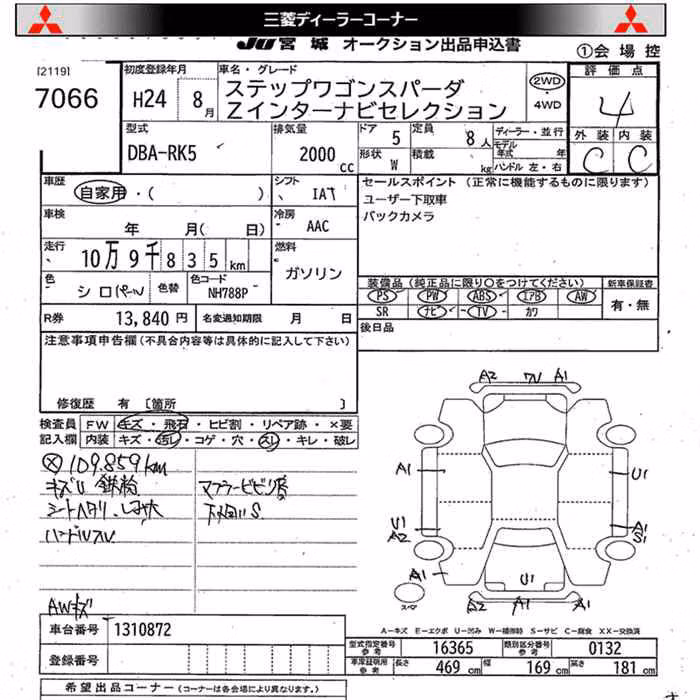 三菱ディーラーコーナー
JU宮城 オークション出品申込書
①会場控
[2119]
7066
初度登録年月
H24 8月
車名・グレード
ステップワゴンスパーダ
Zインターナビセレクション
2WD
・
4WD
評価点
4
外装 内装
C C
型式
DBA-RK5
排気量
2000cc
ドア 5
定員 8人
形状 W
積載 kg
ディーラー・並行
モデル年式 年
ハンドル 左・右
車歴
自家用・( )
シフト IAT
セールスポイント (正常に機能するものに限ります)
ユーザー下取車
バックカメラ
車検
年 月( 日)
冷房 AAC
走行
10万9千835km
燃料
ガソリン
色 シロパール
色替
色コード
NH788P
装備品 (純正品に限り○をつけてください)
新車保証書
PS PW ABS エアB AW
SR ナビ TV カワ
有・無
R券 13,840円
名変通知期限 月 日
後日品
注意事項申告欄(不具合内容等は具体的に記入して下さい)
修復歴 有 [箇所 ]
検査員記入欄
FW キズ・飛石・ヒビ割・リペア跡・×要
内装 キズ・汚レ・コゲ・穴・スレ・キレ・破レ
109.859km
キズU 鉄粉
マフラービビリ音
シートヘタリ
下廻りS
AWキズ
A2 W A1
A1 U1
U1 A1
A2 S1
A1 U1
スペア
A2 A1 A1
A−キズ E−エクボ U−凹み W−補修跡 S−サビ C−腐食 XX−交換済
車台番号 1310872
登録番号
型式指定番号参考 16365
類別区分番号参考 0132
車庫証明用参考 長さ 469cm 幅 169cm 高さ 181cm
希望出品コーナー (コーナーは各会場により異なります。)